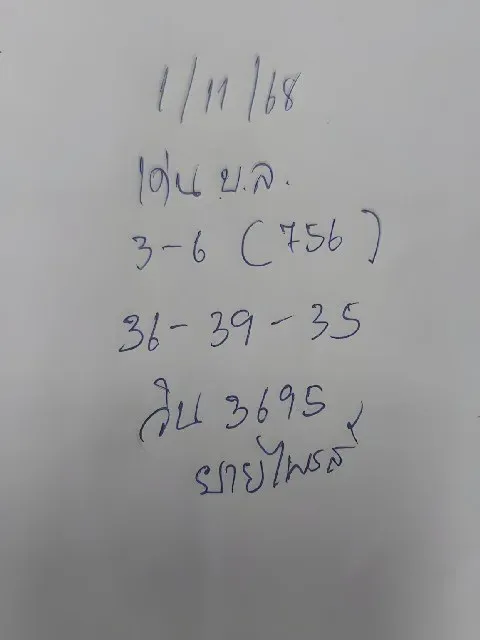 1/11/68
เด่น บ.ล.
3-6 (756)
36-39-35
วิน 3695
ยายไพรส์